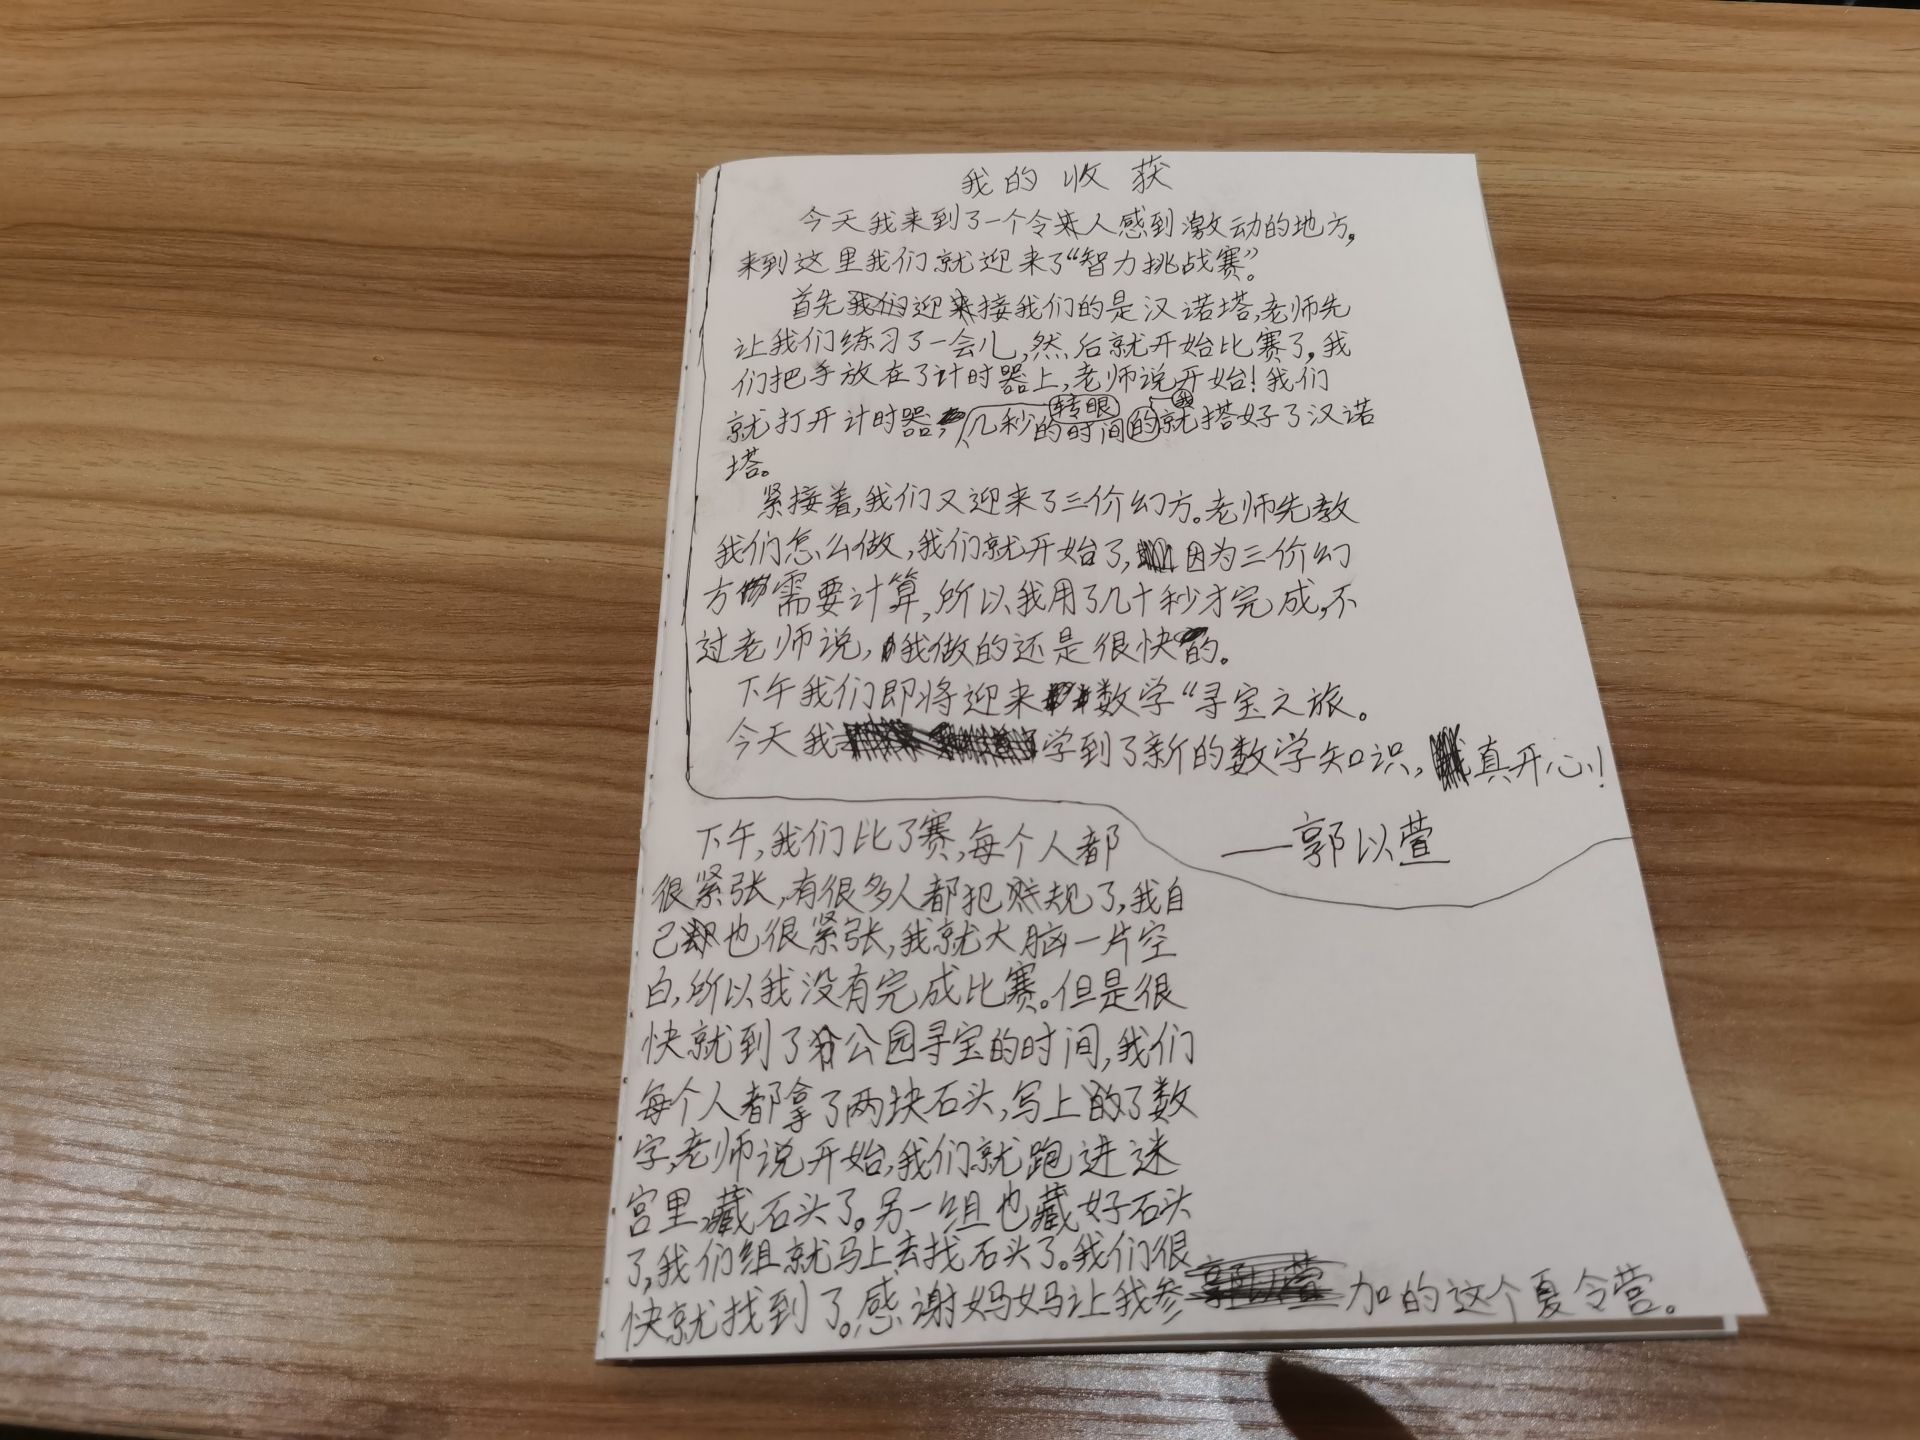 我的收获
今天我来到了一个令人感到激动的地方,
来到这里我们就迎来了“智力挑战赛”。
首先迎接我们的是汉诺塔,老师先
让我们练习了一会儿,然后就开始比赛了,我
们把手放在了计时器上,老师说开始!我们
转眼 我
就打开计时器,几秒的时间的就搭好了汉诺
塔。
紧接着,我们又迎来了三价幻方。老师先教
我们怎么做,我们就开始了,因为三价幻
方需要计算,所以我用了几十秒才完成,不
过老师说,我做的还是很快的。
下午我们即将迎来数学“寻宝之旅。
今天我学到了新的数学知识,真开心!
—郭以萱
下午,我们比了赛,每个人都
很紧张,有很多人都把规了,我自
己也很紧张,我就大脑一片空
白,所以我没有完成比赛。但是很
快就到了公园寻宝的时间,我们
每个人都拿了两块石头,写上了数
字,老师说开始,我们就跑进迷
宫里,藏石头了。另一组也藏好石头
了,我们组就马上去找石头了。我们很
快就找到了。感谢妈妈让我参加的这个夏令营。